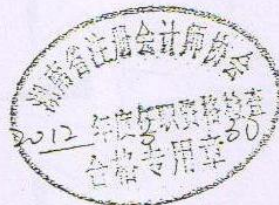 湖南省注册会计师协会
2012 年度任职资格检查
3 30
合格专用章